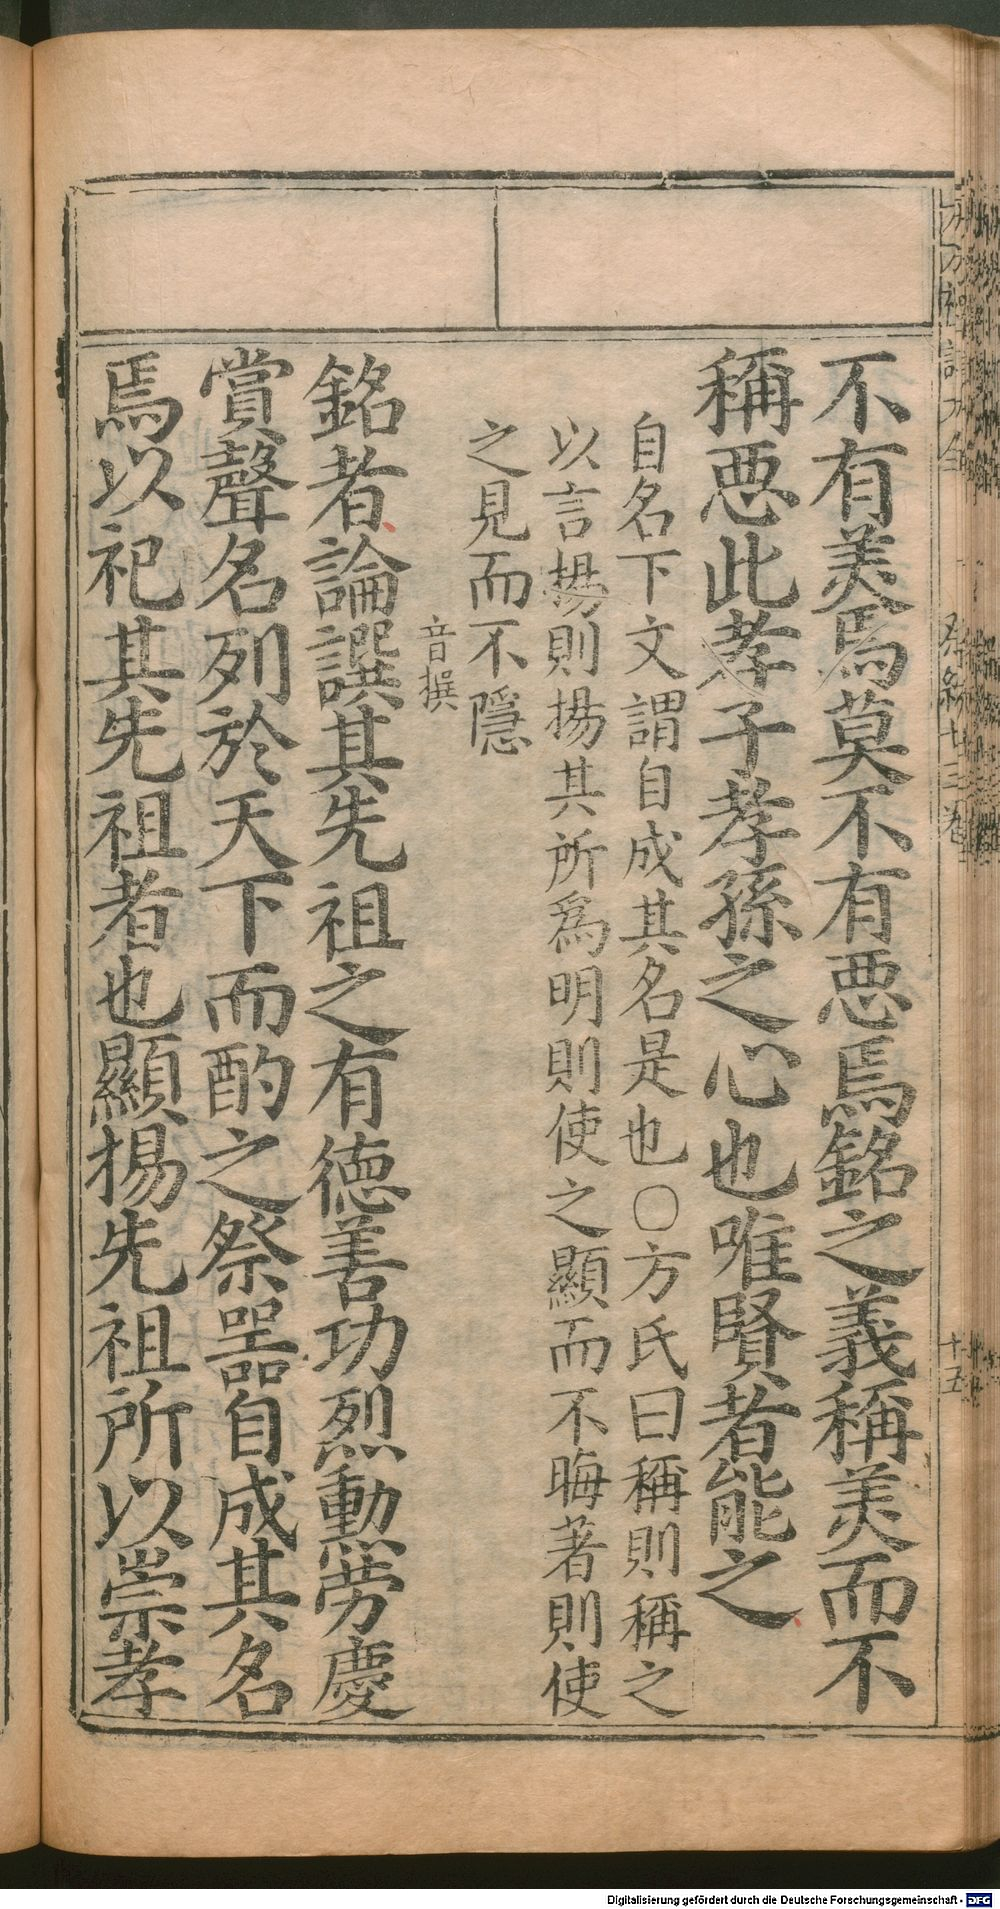 不有美焉莫不有惡焉銘之義稱美而不
稱惡此孝子孝孫之心也唯賢者能之
自名下文謂自成其名是也〇方氏曰稱則稱之
以言揚則揚其所爲明則使之顯而不晦著則使
之見而不隱
音撰
銘者論譔其先祖之有德善功烈勳勞慶
賞聲名列於天下而酌之祭器自成其名
焉以祀其先祖者也顯揚先祖所以崇孝
十五
Digitalisierung gefördert durch die Deutsche Forschungsgemeinschaft - DFG